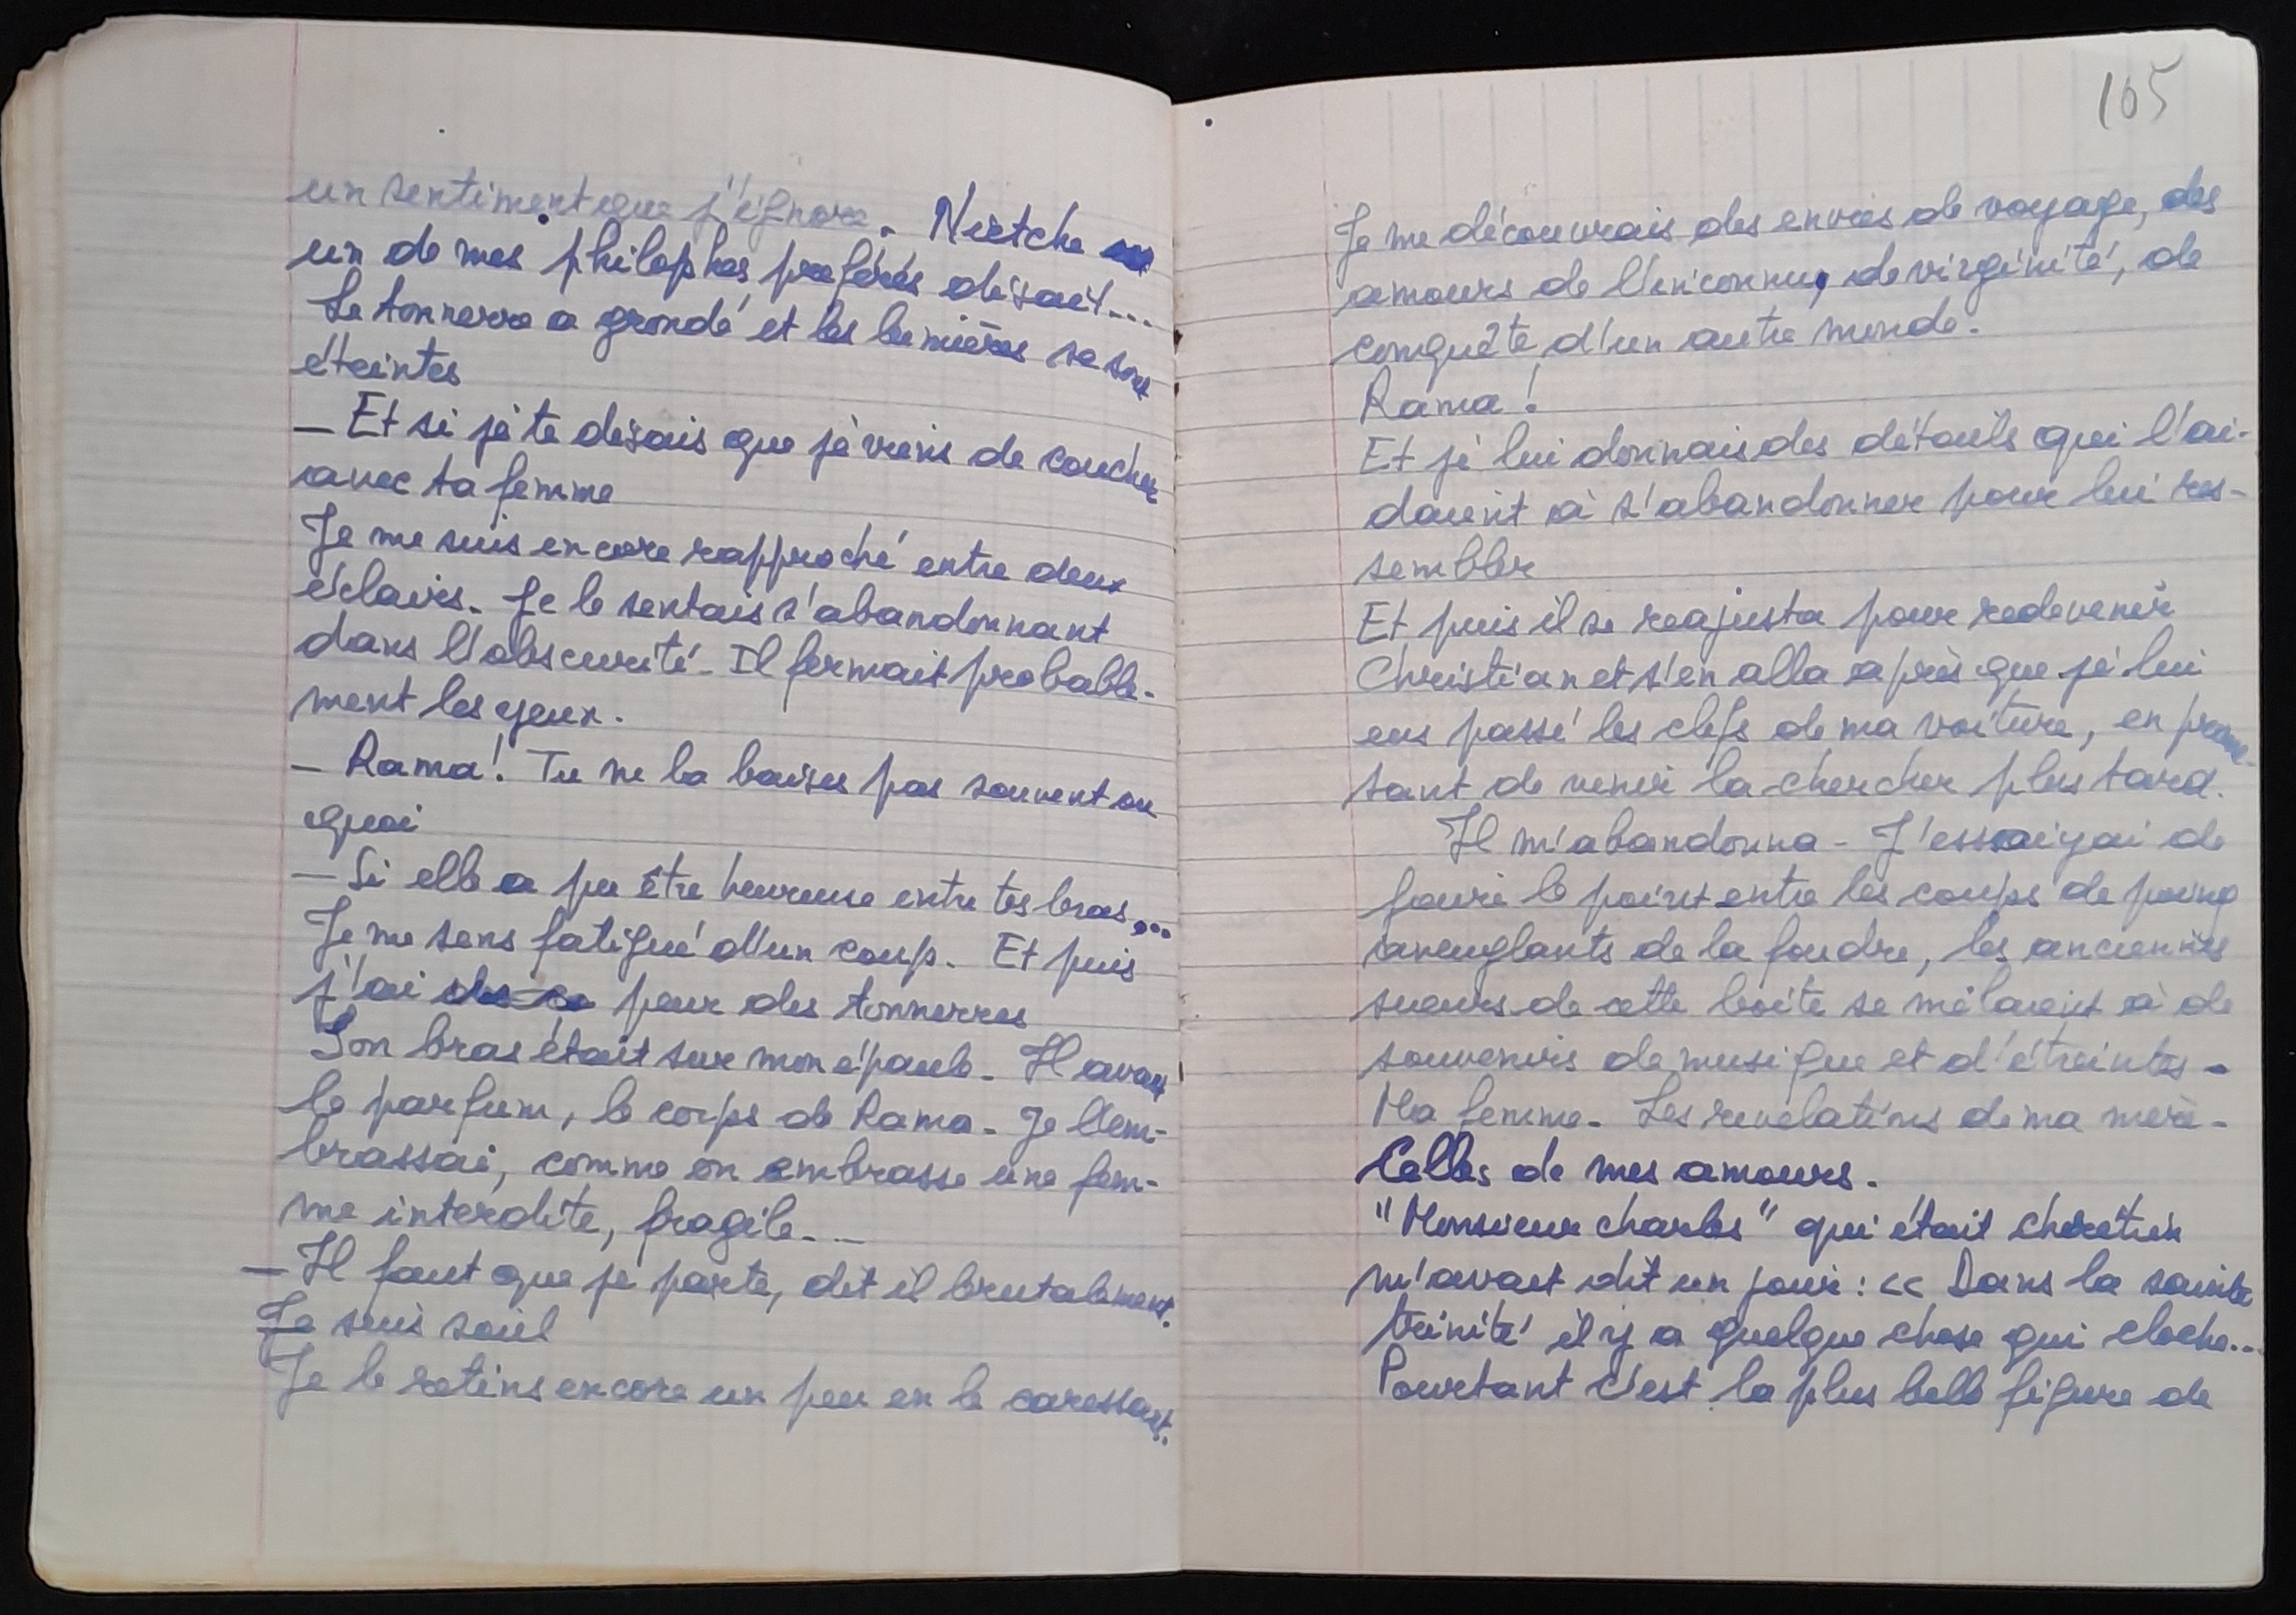 un sentiment que j'ignore. Nietche
un de mes philophes préférés disait...
Le tonnerre a grondé et les lumières se sont
éteintes
— Et si je te disais que je viens de coucher
avec ta femme
Je me suis encore rapproché entre deux
éclairs. Je le sentais s'abandonnant
dans l'obscurité. Il fermait probable-
ment les yeux.
— Rama! Tu ne la baises pas souvent ou
quoi
— Si elle a pu être heureuse entre tes bras...
Je me sens fatigué d'un coup. Et puis
j'ai peur des tonnerres
Son bras était sur mon épaule. Il avait
le parfum, le corps de Rama. Je l'em-
brassai, comme on embrasse une fem-
me interdite, fragile..
— Il faut que je parte, dit il brutalement.
Je suis soûl
Je le retins encore un peu en le caressant.
105
Je me découvrais des envies de voyage, des
amours de l'inconnu, de virginité, de
conquête d'un autre monde.
Rama!
Et je lui donnais des détails qui l'ai-
daient à s'abandonner pour lui res-
sembler
Et puis il se reajusta pour redevenir
Christian et s'en alla après que je lui
eus passé les clefs de ma voiture, en prome-
sant de venir la chercher plus tard.
Il m'abandonna. J'essaiyai de
faire le point entre les coups de poing
aveuglants de la foudre, les anciennes
sueurs de cette boite se mêlaient à de
souvenirs de musique et d'étreintes.
Ma femme. Les revelations de ma mère.
Celles de mes amours.
"Monsieur Charles" qui était chrétien
m'avait dit un jour: << Dans la sainte
trinité il y a quelque chose qui cloche...
Pourtant c'est la plus belle figure de